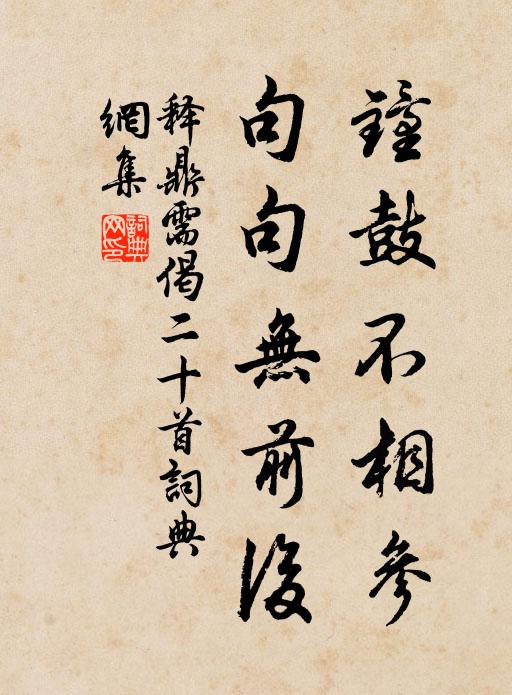 鐘鼓不相參
句句無前後
释鼎需偈二十首詞典
網集
詞典网印